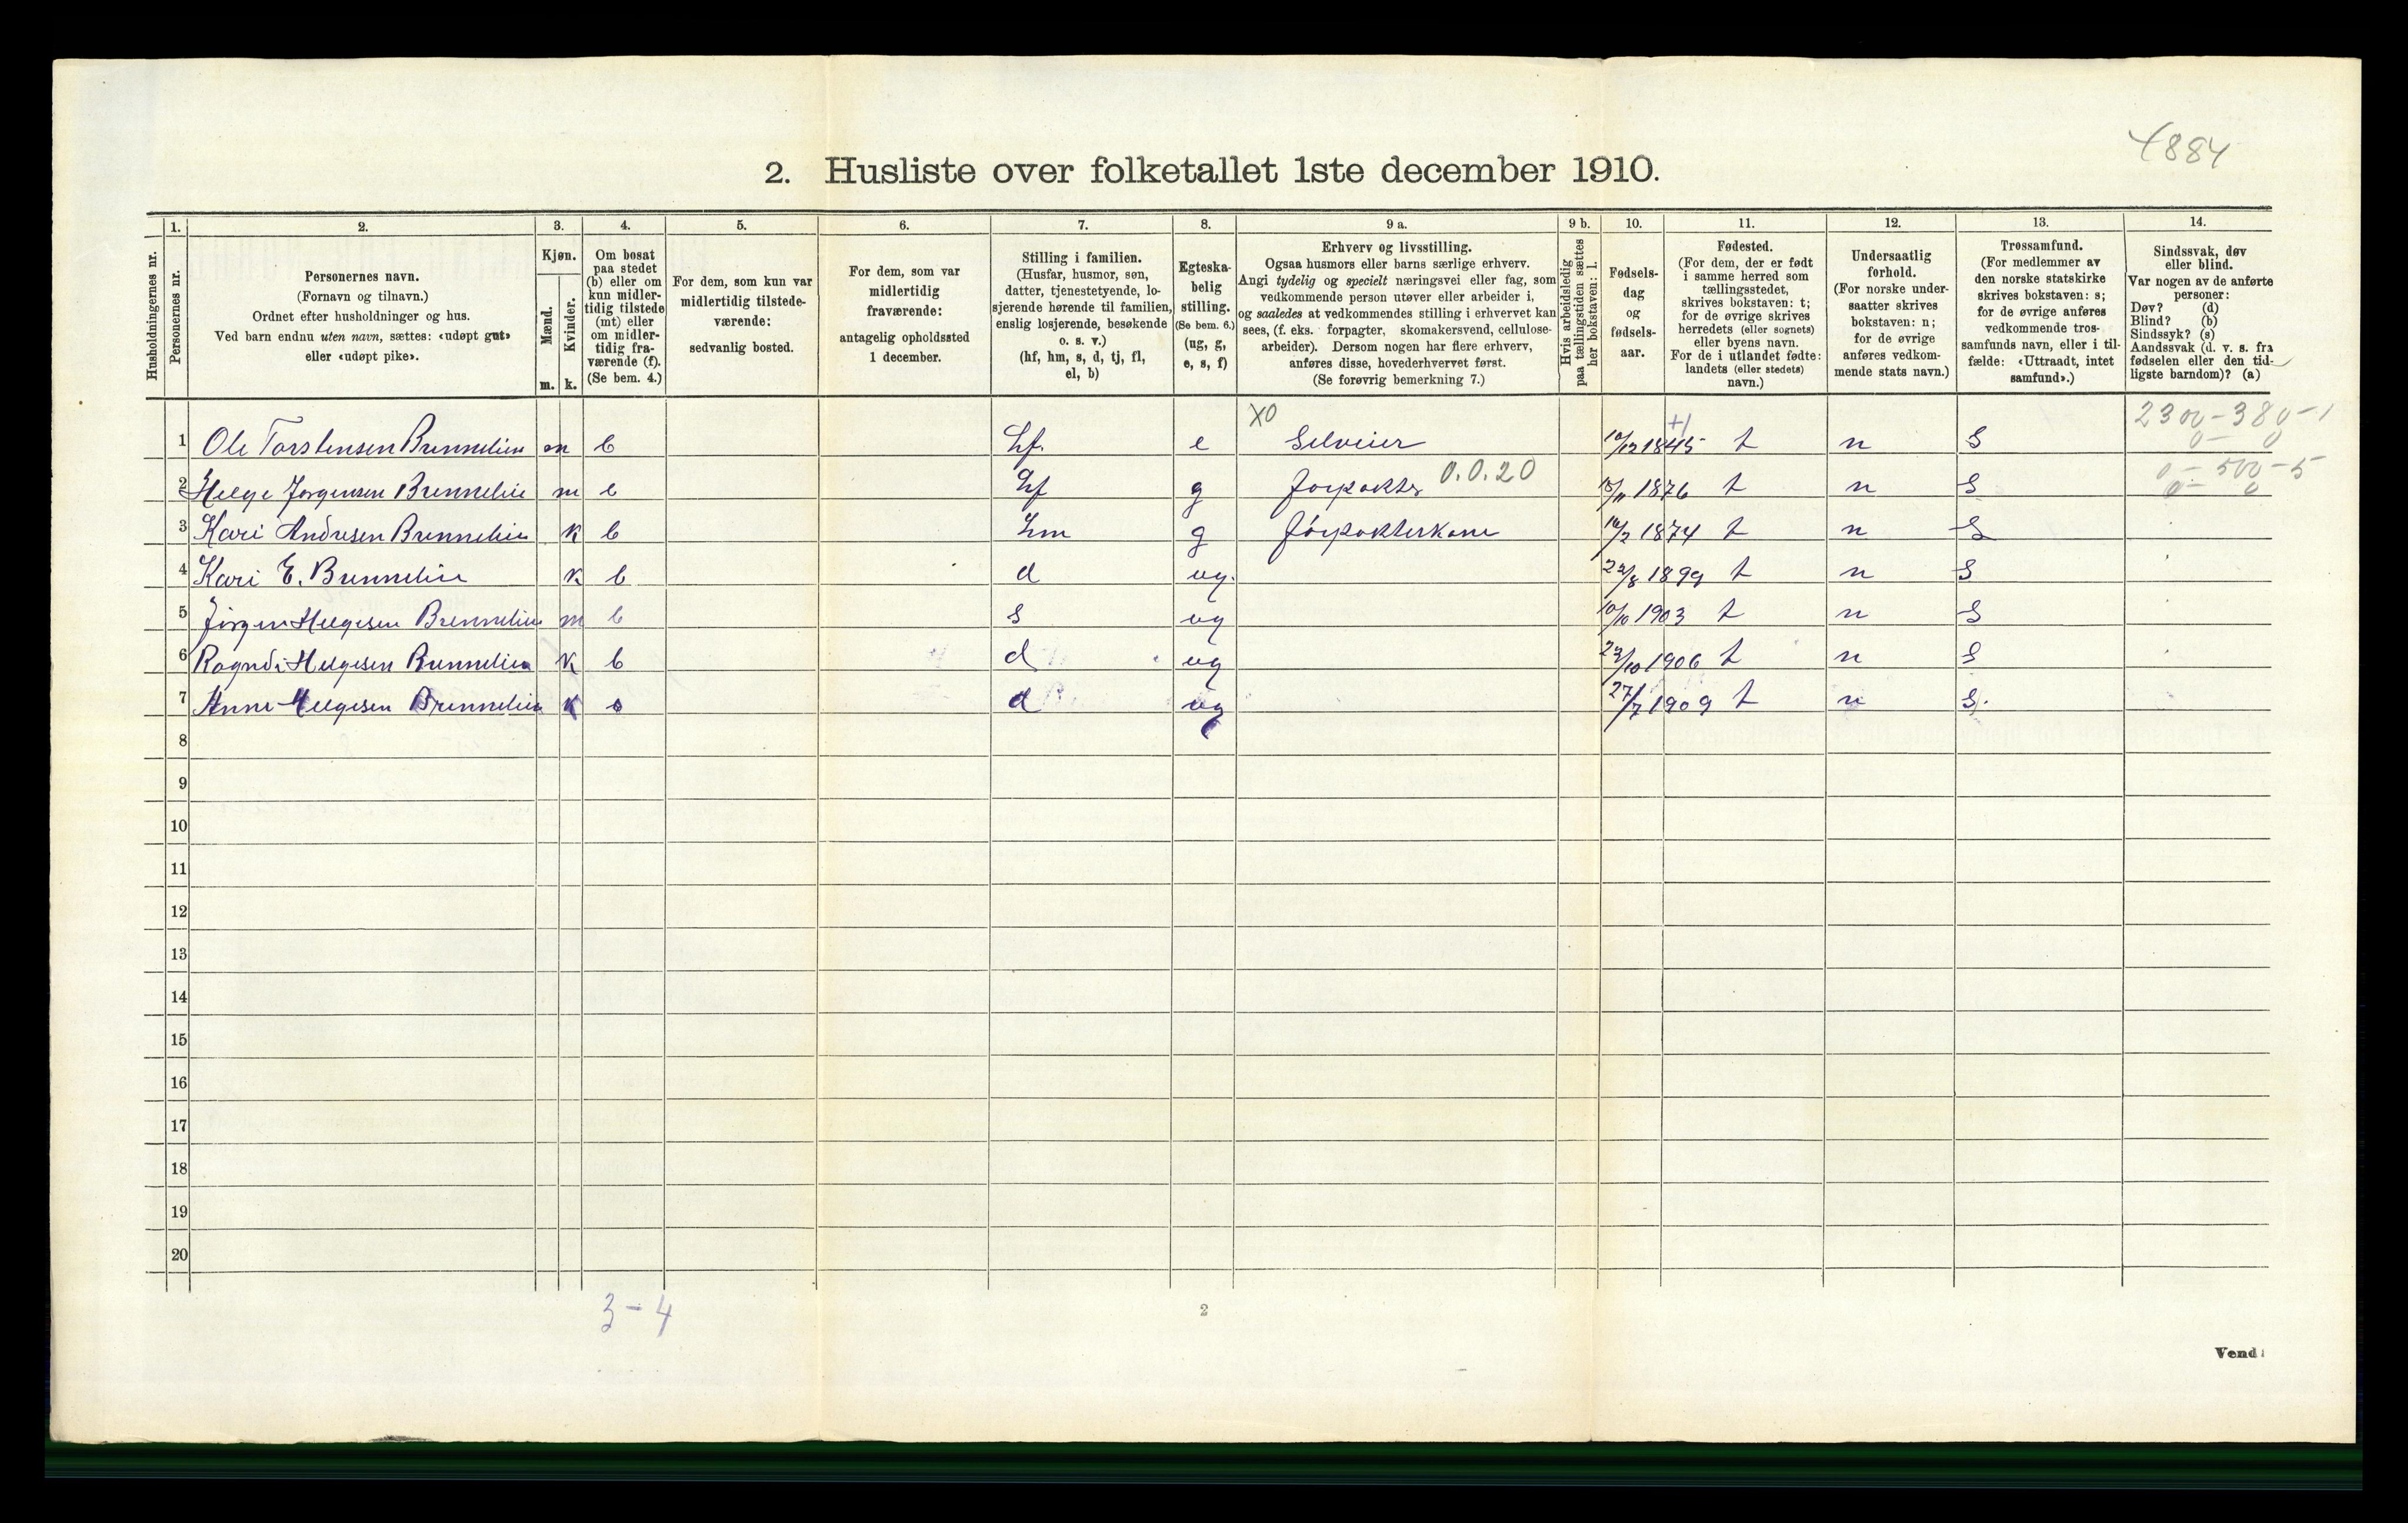 4884
2. Husliste over folketallet 1ste december 1910.
Husholdningernes nr.
1.
Personernes nr.
2.
Personernes navn.
(Fornavn og tilnavn.)
Ordnet efter husholdninger og hus.
Ved barn endnu uten navn, sættes: «udøpt gut»
eller «udøpt pike».
3.
Kjøn.
Mænd.
m.
Kvinder.
k.
4.
Om bosat
paa stedet
(b) eller om
kun midler-
tidig tilstede
(mt) eller
om midler-
tidig fra-
værende (f).
(Se bem. 4.)
5.
For dem, som kun var
midlertidig tilstede-
værende:
sedvanlig bosted.
6.
For dem, som var
midlertidig
fraværende:
antagelig opholdssted
1 december.
7.
Stilling i familien.
(Husfar, husmor, søn,
datter, tjenestetyende, lo-
sjerende hørende til familien,
enslig losjerende, besøkende
o. s. v.)
(hf, hm, s, d, tj, fl,
el, b)
8.
Egteska-
belig
stilling.
(Se bem. 6.)
(ug, g,
e, s, f)
9 a.
Erhverv og livsstilling.
Ogsaa husmors eller barns særlige erhverv.
Angi tydelig og specielt næringsvei eller fag, som
vedkommende person utøver eller arbeider i,
og saaledes at vedkommendes stilling i erhvervet kan
sees, (f. eks. forpagter, skomakersvend, cellulose-
arbeider). Dersom nogen har flere erhverv,
anføres disse, hovederhvervet først.
(Se forøvrig bemerkning 7.)
9 b.
Hvis arbeidsledig
paa tællingstiden sættes
her bokstaven: l.
10.
Fødsels-
dag
og
fødsels-
aar.
11.
Fødested.
(For dem, der er født
i samme herred som
tællingsstedet,
skrives bokstaven: t;
for de øvrige skrives
herredets (eller sognets)
eller byens navn.
For de i utlandet fødte:
landets (eller stedets)
navn.)
12.
Undersaatlig
forhold.
(For norske under-
saatter skrives
bokstaven: n;
for de øvrige
anføres vedkom-
mende stats navn.)
13.
Trossamfund.
(For medlemmer av
den norske statskirke
skrives bokstaven: s;
for de øvrige anføres
vedkommende tros-
samfunds navn, eller i til-
fælde: «Uttraadt, intet
samfund».)
14.
Sindssvak, døv
eller blind.
Var nogen av de anførte
personer:
Døv? (d)
Blind? (b)
Sindssyk? (s)
Aandssvak (d. v. s. fra
fødselen eller den tid-
ligste barndom)? (a)
X0 +1 2300-380-1
1 Ole Torstensen Brennelien m b hf e Selveier 10/12 1845 t n S 0- 0
0.0.20 0-500-5
2 Helge Jørgensen Brennelien m b hf g forpakter 15/11 1876 t n S 0- 0
3 Kari Andresen Brennelien k b hm g forpakterkone 10/2 1874 t n S
4 Kari E. Brennelien k b d ug. 22/8 1899 t n S
5 Jørgen Helgesen Brennelien m b s ug 10/10 1903 t n S
6 Ragndi Helgesen Brennelien k b d ug 23/10 1906 t n S
7 Anne Helgesen Brennelien k b d ug 27/7 1909 t n S.
8
9
10
11
12
13
14
15
16
17
18
19
20
3-4
2
Vend!